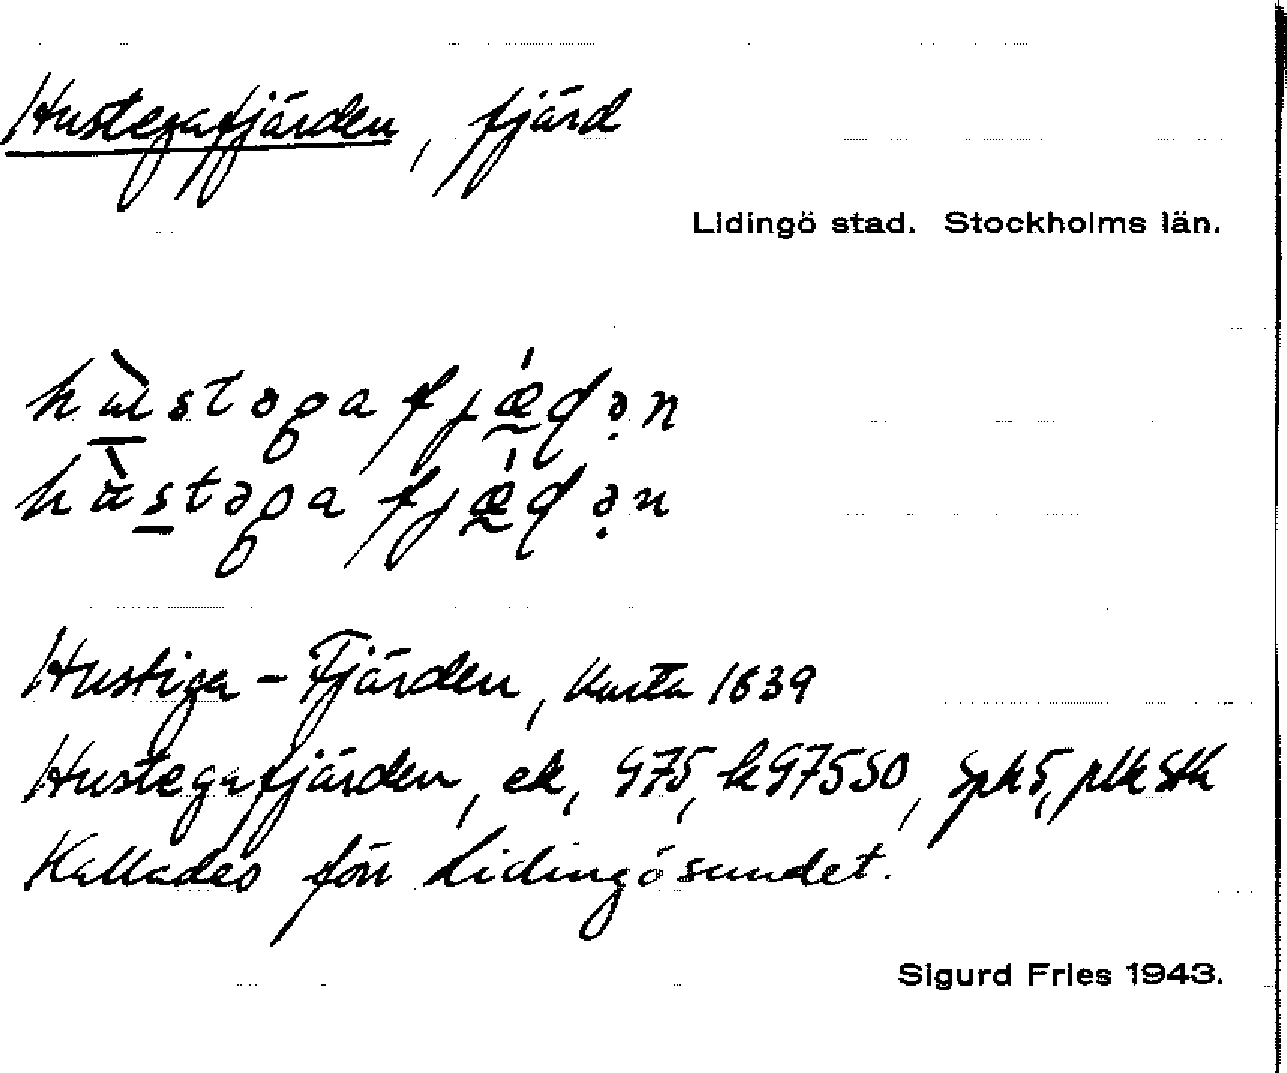 Hustegafjärden, fjärd
Lidingö stad. Stockholms län.
Hustiga-Fjärden, Karta 1639
Hustegafjärden, ek, G75, k G7550, Spk 5, plk Sth
Kallades förr Lidingösundet.
Sigurd Fries 1943.